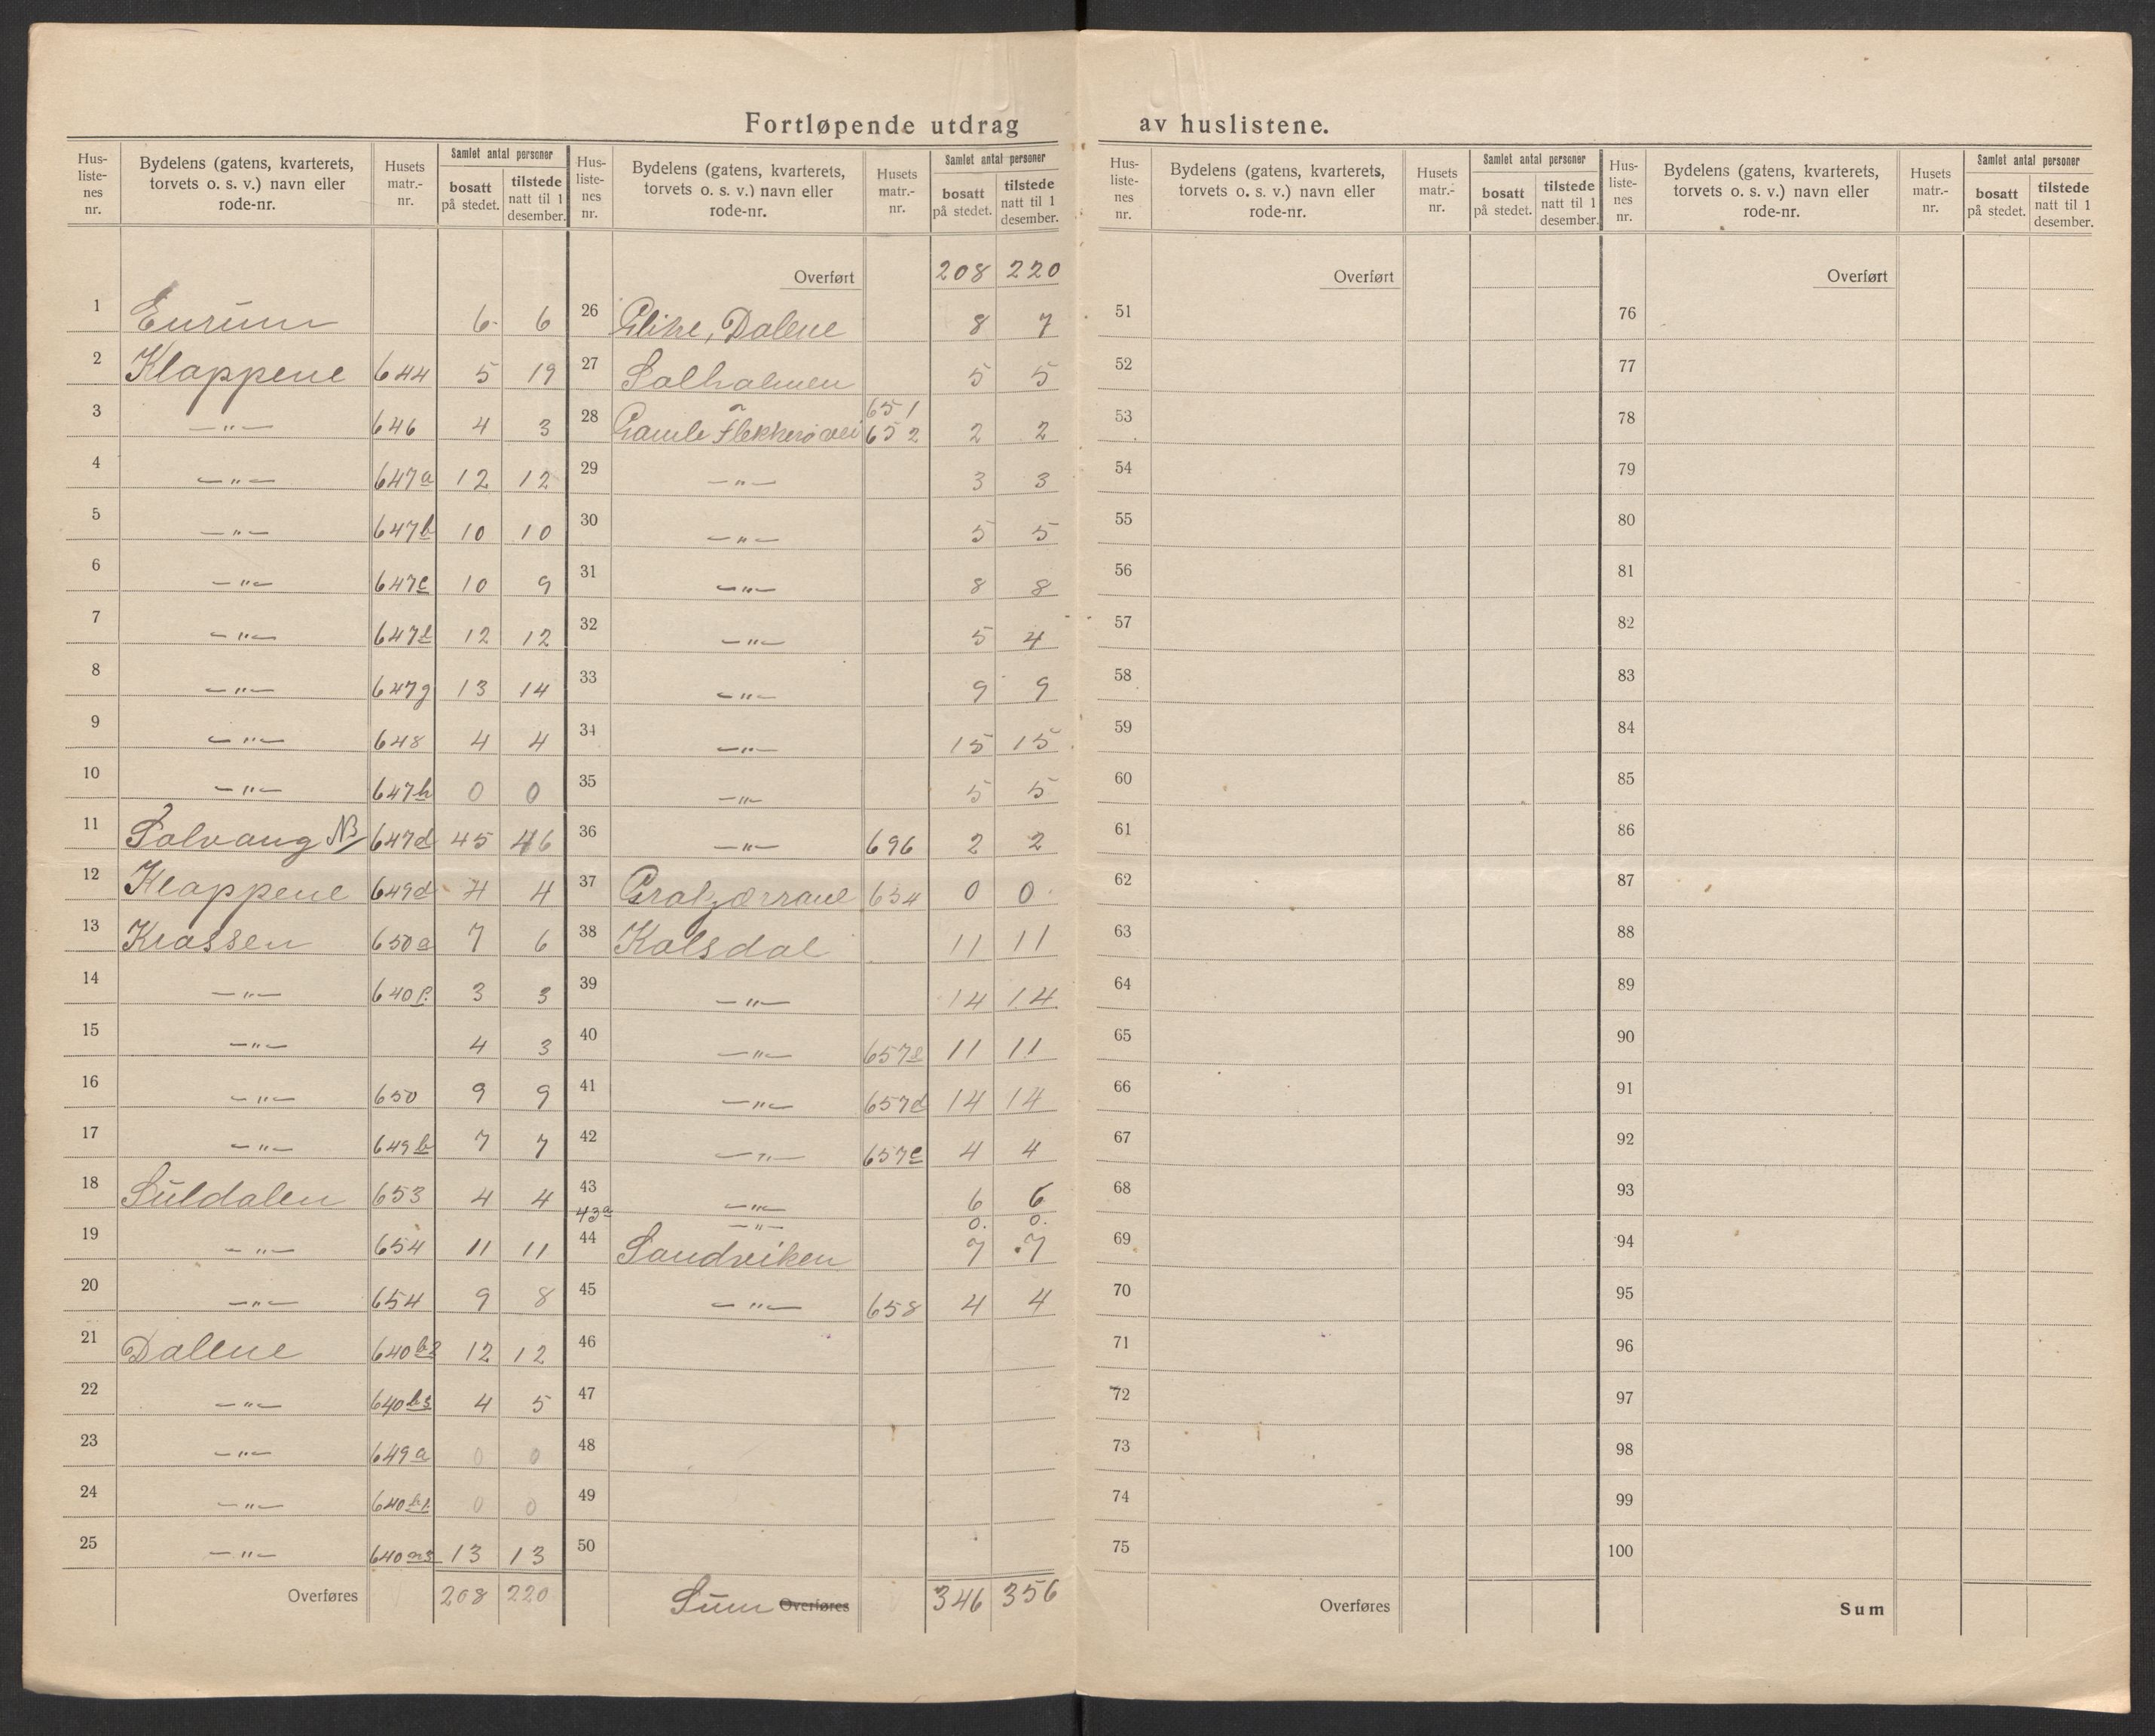 Fortløpende utdrag av huslistene.
Hus-listenes nr. Bydelens (gatens, kvarterets, torvets o. s. v.) navn eller rode-nr. Husets matr.-nr. Samlet antal personer bosatt på stedet. tilstede natt til 1 desember.
1 Eurum 6 6
2 Klappene 644 5 19
3 —"— 646 4 3
4 —"— 647a 12 12
5 —"— 647b 10 10
6 —"— 647c 10 9
7 —"— 647f 12 12
8 —"— 647g 13 14
9 —"— 648 4 4
10 —"— 647h 0 0
11 Solvang NB 647d 45 46
12 Klappene 649d 4 4
13 Krossen 650a 7 6
14 —"— 640 3 3
15 —"— 4 3
16 —"— 650 9 9
17 —"— 649b 7 7
18 Suldalen 653 4 4
19 —"— 654 11 11
20 —"— 654 9 8
21 Dalene 640b2 12 12
22 —"— 640b3 4 5
23 —"— 649a 0 0
24 —"— 640b1 0 0
25 —"— 640 13 13
Overføres 208 220
Hus-listenes nr. Bydelens (gatens, kvarterets, torvets o. s. v.) navn eller rode-nr. Husets matr.-nr. Samlet antal personer bosatt på stedet. tilstede natt til 1 desember.
Overført 208 220
26 Dalene 8 7
27 Solholmen 5 5
28 Gamle Flekkerøvei 651 652 2 2
29 —"— 3 3
30 —"— 5 5
31 —"— 8 8
32 —"— 5 4
33 —"— 9 9
34 —"— 15 15
35 —"— 5 5
36 —"— 696 2 2
37 654 0 0
38 Kolsdal 11 11
39 —"— 14 14
40 —"— 657 11 11
41 —"— 657d 14 14
42 —"— 657c 4 4
43 —"— 6 6
43a —"— 0. 0.
44 Sandviken 7 7
45 —"— 658 4 4
46
47
48
49
50
Sum Overføres 346 356
Hus-listenes nr. Bydelens (gatens, kvarterets, torvets o. s. v.) navn eller rode-nr. Husets matr.-nr. Samlet antal personer bosatt på stedet. tilstede natt til 1 desember.
Overført
51
52
53
54
55
56
57
58
59
60
61
62
63
64
65
66
67
68
69
70
71
72
73
74
75
Overføres
Hus-listenes nr. Bydelens (gatens, kvarterets, torvets o. s. v.) navn eller rode-nr. Husets matr.-nr. Samlet antal personer bosatt på stedet. tilstede natt til 1 desember.
Overført
76
77
78
79
80
81
82
83
84
85
86
87
88
89
90
91
92
93
94
95
96
97
98
99
100
Sum